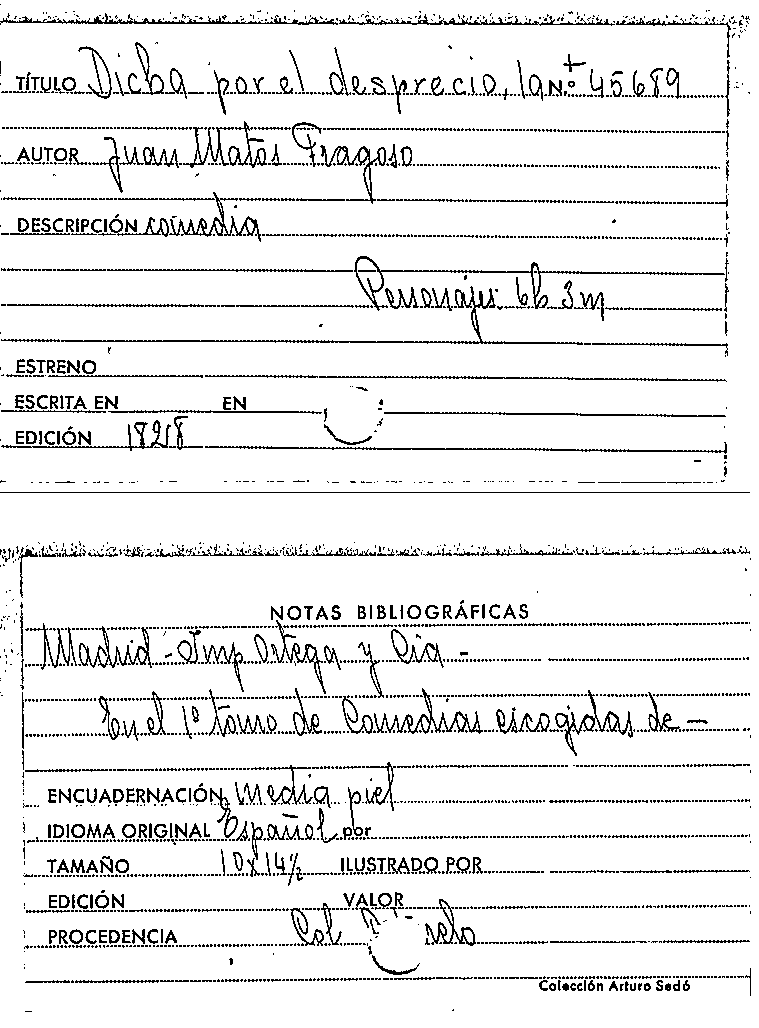 TÍTULO Dicha por el desprecio, la N.º + 45689
AUTOR Juan Matos Fragoso
DESCRIPCIÓN comedia
Personajes: 6h 3m
ESTRENO
ESCRITA EN EN
EDICIÓN 1828
NOTAS BIBLIOGRÁFICAS
Madrid - Imp Ortega y Cia -
En el 1º tomo de Comedias escogidas de -
ENCUADERNACIÓN media piel
IDIOMA ORIGINAL Español por
TAMAÑO 10x14½ ILUSTRADO POR
EDICIÓN VALOR
PROCEDENCIA Col
Colección Arturo Sedó